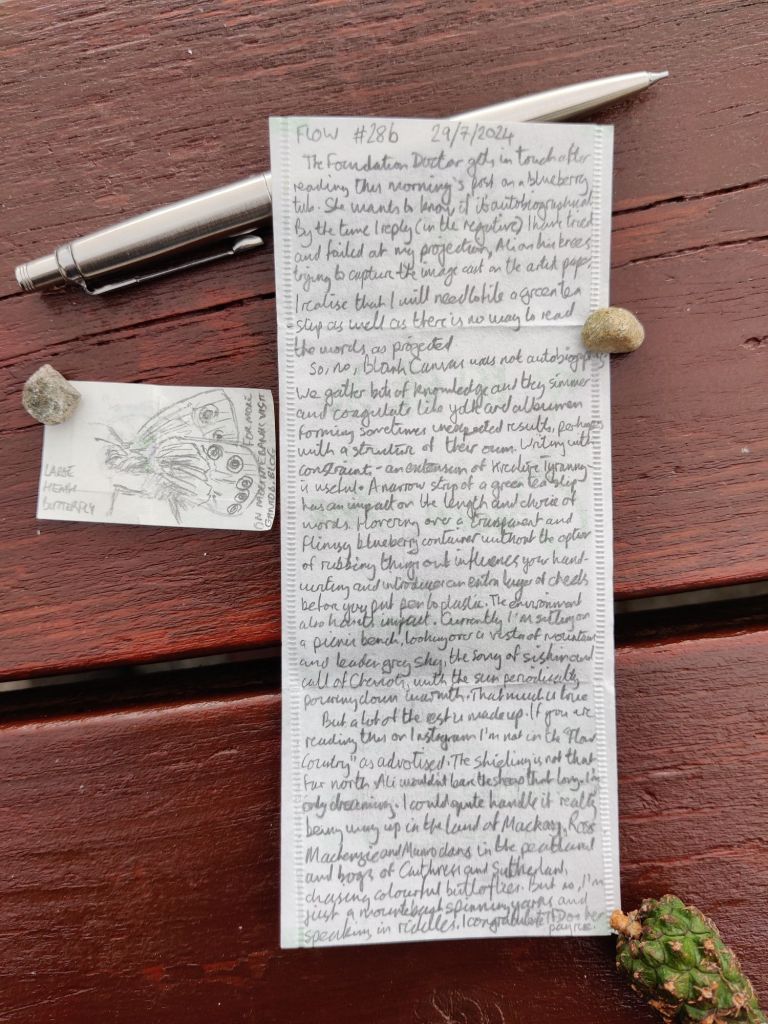 FLOW #28b 29/7/2024
The Foundation Doctor gets in touch after
reading this morning's post on a blueberry
tub. She wants to know if its autobiographical.
By the time I reply (in the negative) I have tried
and failed at my projection, Ali on his knees
trying to capture the image cast on the artist paper.
I realise that I will need to write a green tea
strip as well as there is no way to read
the words as projected
So, no, Blank Canvas was not autobiography
We gather bits of knowledge and they simmer
and coagulate like yolk and albumen
forming sometimes unexpected results, perhaps
with a structure of their own. Writing with
constraint - an extension of Kreative Tyranny -
is useful. A narrow strip of a green tea slip
has an impact on the length and choice of
words. Hovering over a transparent and
flimsy blueberry container without the option
of rubbing things out influences your hand-
writing and introduces an extra layer of checks
before you put pen to plastic. The environment
also has its impact. Currently I'm sitting on
a picnic bench, looking over a vista of mountain
and leaden grey sky, the song of siskin and
call of , with the sun periodically
pouring down warmth. That much is true
But a lot of the rest is made up. If you are
reading this on Instagram I'm not in the "Flow
Country" as advertised. The shieling is not that
far north. Ali wouldn't bare the sheep that long. I'm
only dreaming. I could quite handle it really
being way up in the land of Mackay, Ross
Mackenzie and Munro clans in the peatland
and bogs of Caithness and Sutherland,
chasing colourful butterflies. But no, I'm
just a mountebank spinning yarns and
speaking in riddles. I congratulate F Doc her
payrise.
LARGE
HEATH
BUTTERFLY
FOR MORE
ON MOUNTEBANK VISIT
BLOG